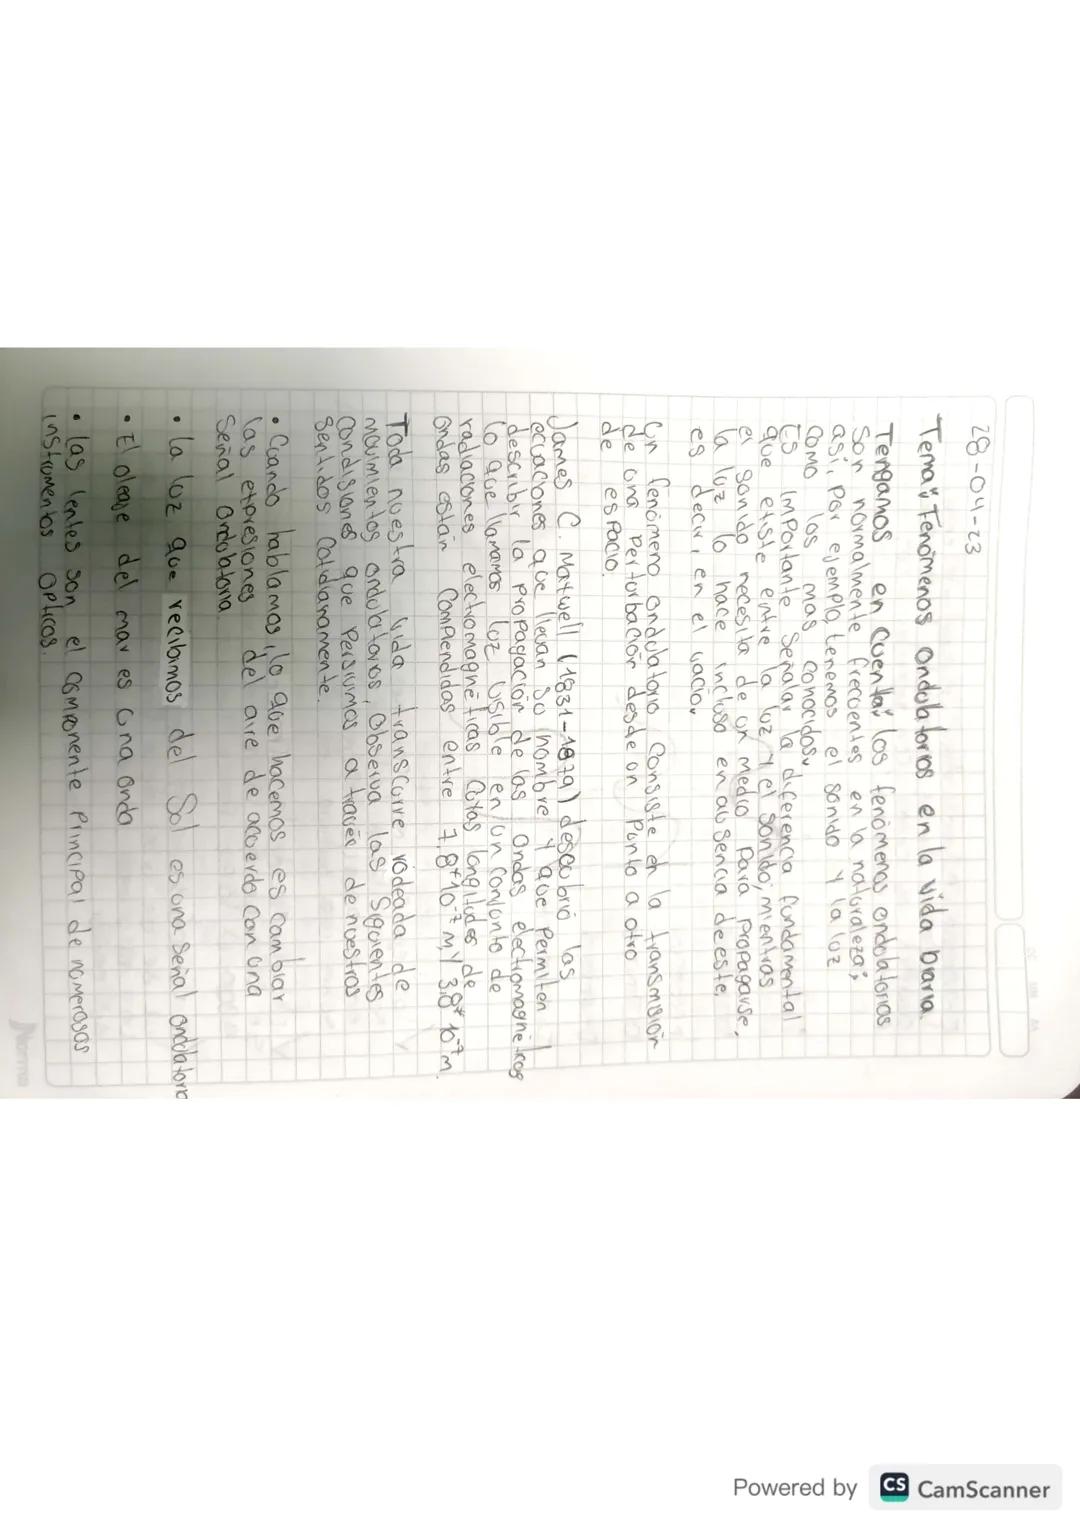 28-04-23
Tema: Fenómenos ondulatorios en la vida diaria.
Tengamos en cuenta: los fenómenos ondulatorios
son normalmente frecuentes en la naturaleza;
así, por ejemplo, tenemos el sonido y la luz
como los mas conocidos.
Es importante señalar la diferencia fundamental
que existe entre la luz y el sonido; mientras
el sonido necesita de un medio para propagarse,
la luz lo hace incluso en ausencia de este,
es decir, en el vacío.
Un fenómeno ondulatorio consiste en la transmisión
de una perturbación desde un punto a otro
de espacio.
James C. Maxwell (1831-1879) descubrió las
ecuaciones que llevan su nombre y que permiten
describir la propagación de las ondas electromagneticas
lo que llamamos luz visible en un conjunto de
radiaciones electromagnéticas cuyas longitudes de
ondas están compendidas entre 7,8*10⁻⁷ m y 3,8*10⁻⁷ m.
Toda nuestra vida transcurre rodeada de
movimientos ondulatorios, observa las siguientes
condisiones que persivimos a través de nuestros
sentidos cotidianamente.
• Cuando hablamos, lo que hacemos es cambiar
las expresiones del aire de acuerdo con una
señal ondulatoria.
• la luz que recibimos del Sol es una señal ondulatoria
• El oleaje del mar es una onda
• las lentes son el componente principal de numerosos
instrumentos opticos.
Norma
Powered by CS CamScanner